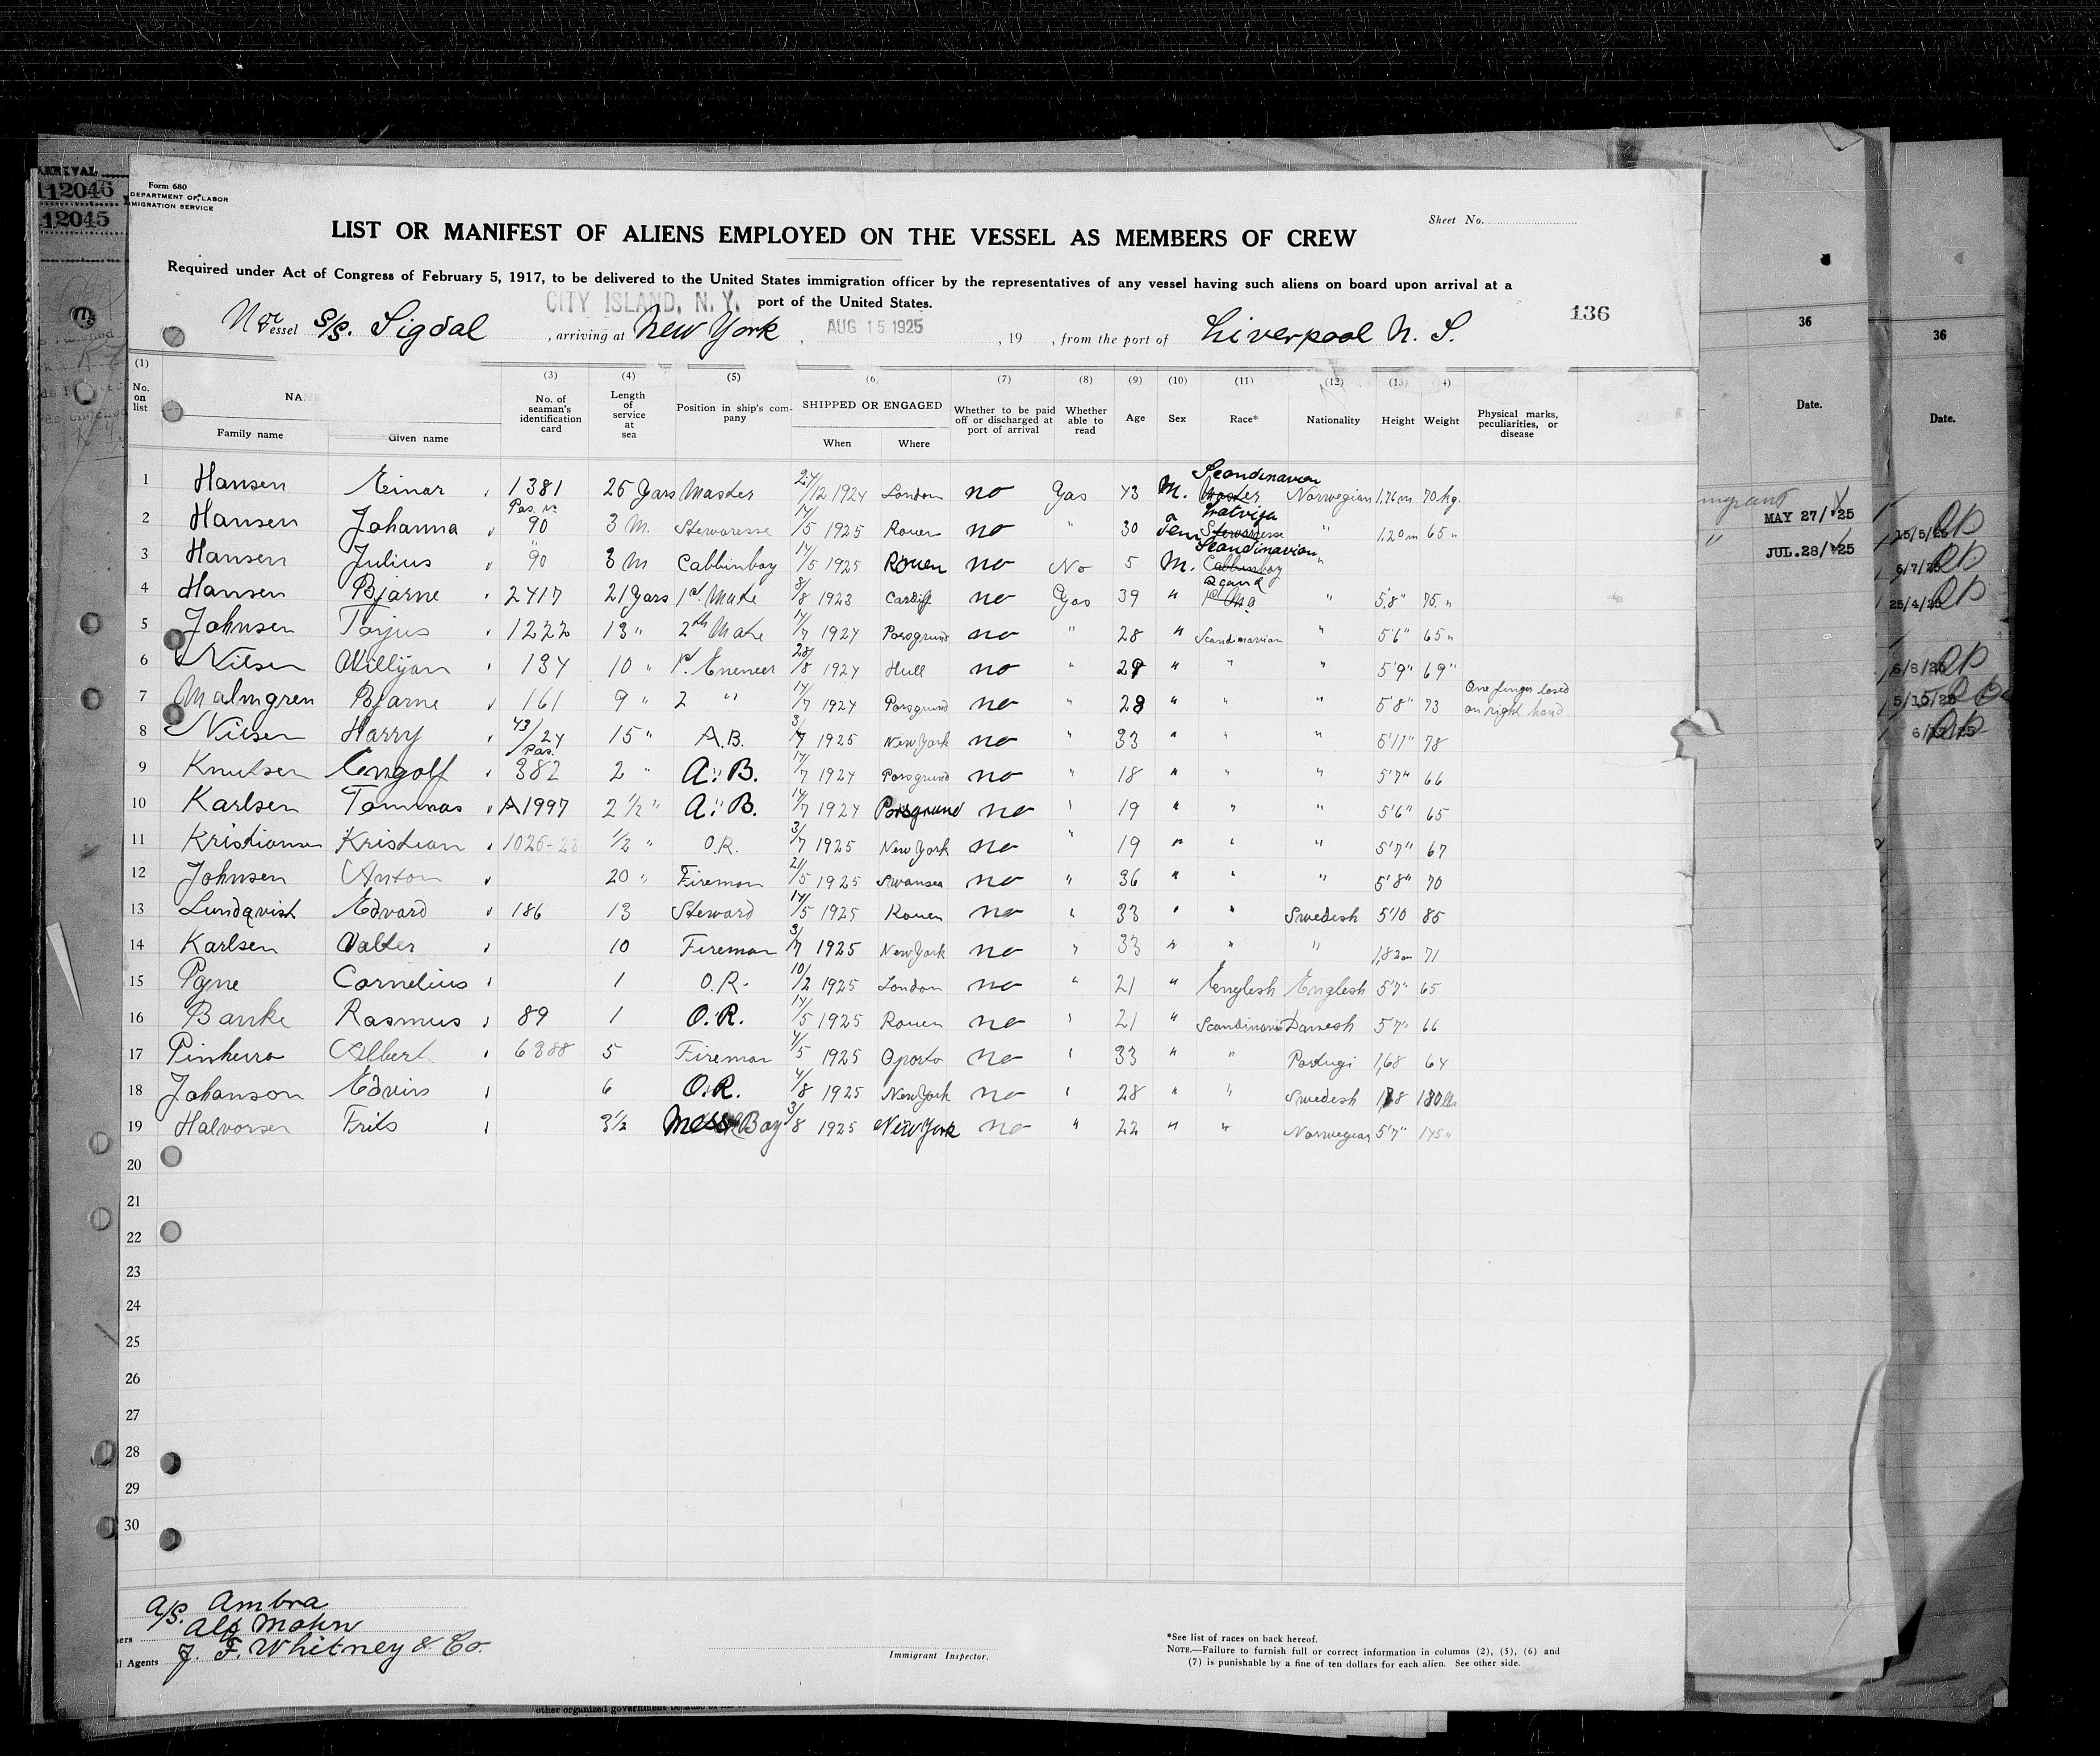 ARRIVAL
12046
12045
Form 680
DEPARTMENT OF LABOR
IMMIGRATION SERVICE
Sheet No.
LIST OR MANIFEST OF ALIENS EMPLOYED ON THE VESSEL AS MEMBERS OF CREW
Required under Act of Congress of February 5, 1917, to be delivered to the United States immigration officer by the representatives of any vessel having such aliens on board upon arrival at a
port of the United States.
CITY ISLAND, N. Y.
136
Nor Vessel S/S. Sigdal, arriving at New York, AUG 15 1925, 19 , from the port of Liverpool N. S.
(1) (3) (4) (5) (6) (7) (8) (9) (10) (11) (12) (13)
No. on list
Family name Given name
No. of seaman's identification card
Length of service at sea
Position in ship's company
SHIPPED OR ENGAGED When Where
Whether to be paid off or discharged at port of arrival
Whether able to read
Age Sex Race* Nationality Height Weight
Physical marks, peculiarities, or disease
1 Hansen Einar 1381 25 Years Master 27/12 1924 London no Yas 43 M. Scandinavian Master Norwegian 1,76 m 70 kg.
2 Hansen Johanna Pas. No 90 3 M. Stewaresse 14/5 1925 Rouen no " 30 Fem Latvija Stewaresse " 1,20 m 65 "
3 Hansen Julius " 90 3 M Cabbinboy 14/5 1925 Rouen no No 5 M. Scandinavian Cabbinboy "
4 Hansen Bjarne 2417 21 Yars 1st. Mate 8/8 1923 Cardiff no Yas 39 " " 5'8" 75 "
5 Johnsen Torjus 1222 13 " 2th Mate 14/7 1924 Porsgrund no " 28 " Scandinavian " 5'6" 65 "
6 Nilsen Willijan 134 10 " 1st. Eneneer 28/8 1924 Hull no " 29 " " " 5'9" 69 "
7 Malmgren Bjarne 161 9 " 2 " 14/7 1924 Porsgrund no " 28 " " " 5'8" 73 One finger losed on right hand
8 Nilsen Harry 43/24 Pas. 15 " A.B. 3/7 1925 New York no " 33 " " " 5'11" 78
9 Knutsen Engolf 382 2 " A.B. 14/7 1924 Porsgrund no " 18 " " " 5'7" 66
10 Karlsen Tommas A1997 2 1/2 " A.B. 14/7 1924 Porsgrund no " 19 " " " 5'6" 65
11 Kristiansen Kristian 1026-23 1/2 " O.R. 3/7 1925 New York no " 19 " " " 5'7" 67
12 Johnsen Anton 20 " Fireman 21/5 1925 Swansea no " 36 " " " 5'8" 70
13 Lundqvist Edvard 186 13 Steward 14/5 1925 Rouen no " 33 " " Swedish 5'10 85
14 Karlsen Valter 10 Fireman 3/7 1925 New York no " 33 " " " 1,82 m 71
15 Pyne Cornelius 1 O.R. 10/2 1925 London no " 21 " Englesh Englesh 5'7" 65
16 Banke Rasmus 89 1 O.R. 14/5 1925 Rouen no " 21 " Scandinavi Danesh 5'7" 66
17 Pinherro Albert 6388 5 Fireman 4/5 1925 Oporto no " 33 " " Portugi 1,68 64
18 Johanson Edvin 6 O.R. 4/8 1925 New York no " 28 " " Swedish 1,78 180 lbs
19 Halvorsen Frits 3 1/2 Mess Boy 3/8 1925 New York no " 22 " " Norwegian 5'7" 145 "
20
21
22
23
24
25
26
27
28
29
30
A/S. Ambra
Alf Mohn
J. F. Whitney & Co.
Agents
Immigrant Inspector.
*See list of races on back hereof.
NOTE.—Failure to furnish full or correct information in columns (2), (5), (6) and
(7) is punishable by a fine of ten dollars for each alien. See other side.
36
Date.
MAY 27/'25
" JUL.28/'25
36
Date.
15/5/25
6/7/25
25/4/25
6/8/25
5/15/25
other organized government because of